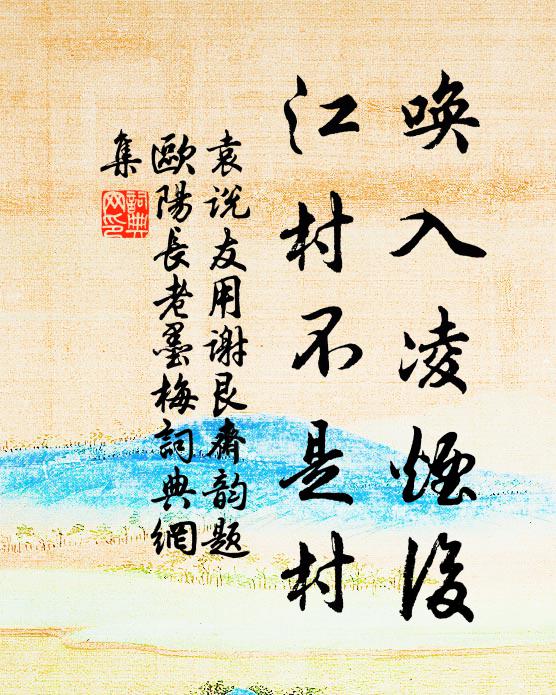 唤入凌煙後
江村不是村
袁说友用谢艮齋韵题
歐陽長老墨梅詞典網
集
詞典
网印